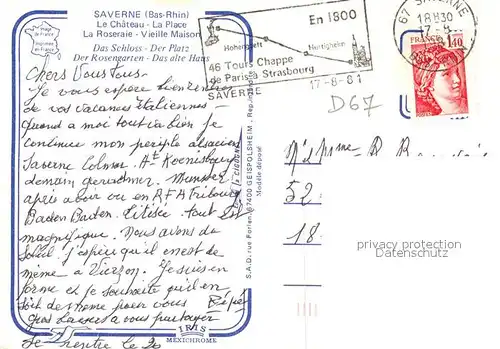 SAVERNE (Bas-Rhin)
Le Château - La Place
La Roseraie - Vieille Maison
Das Schloss - Der Platz
Der Rosengarten - Das alte Haus
Image de France
Imprimée en France
Chers Vous Tous.
Je vous espère bien rentrés
de vos vacances Italiennes -
Quand a moi tout va bien je
continue mon periple alsacien
Saverne Colmar. Ht Koenisbourg
demain gerardmer. Munster
après avoir vu en RFA Fribourg
Baden Baden. Titisee. tout est
magnifique. Nous avons du
soleil j'espère qu'il en est de
même a Vierzon. Je suis en
forme et je souhaite qu'il en
soit de même pour vous Pépé
Gros baisers a vous partager
Je rentre le 20
IRIS
MEXICHROME
S.A.D. rue Forlen 67400 GEISPOLSHEIM -
Modèle déposé
En 1800
Hohenbett
Hurtigheim
46 Tours Chappe
de Paris à Strasbourg
SAVERNE
17-8-81
67 SAVERNE
18H30
17-8
FRANCE
1,40
D67
52
18
copyright protected
Datenschutz